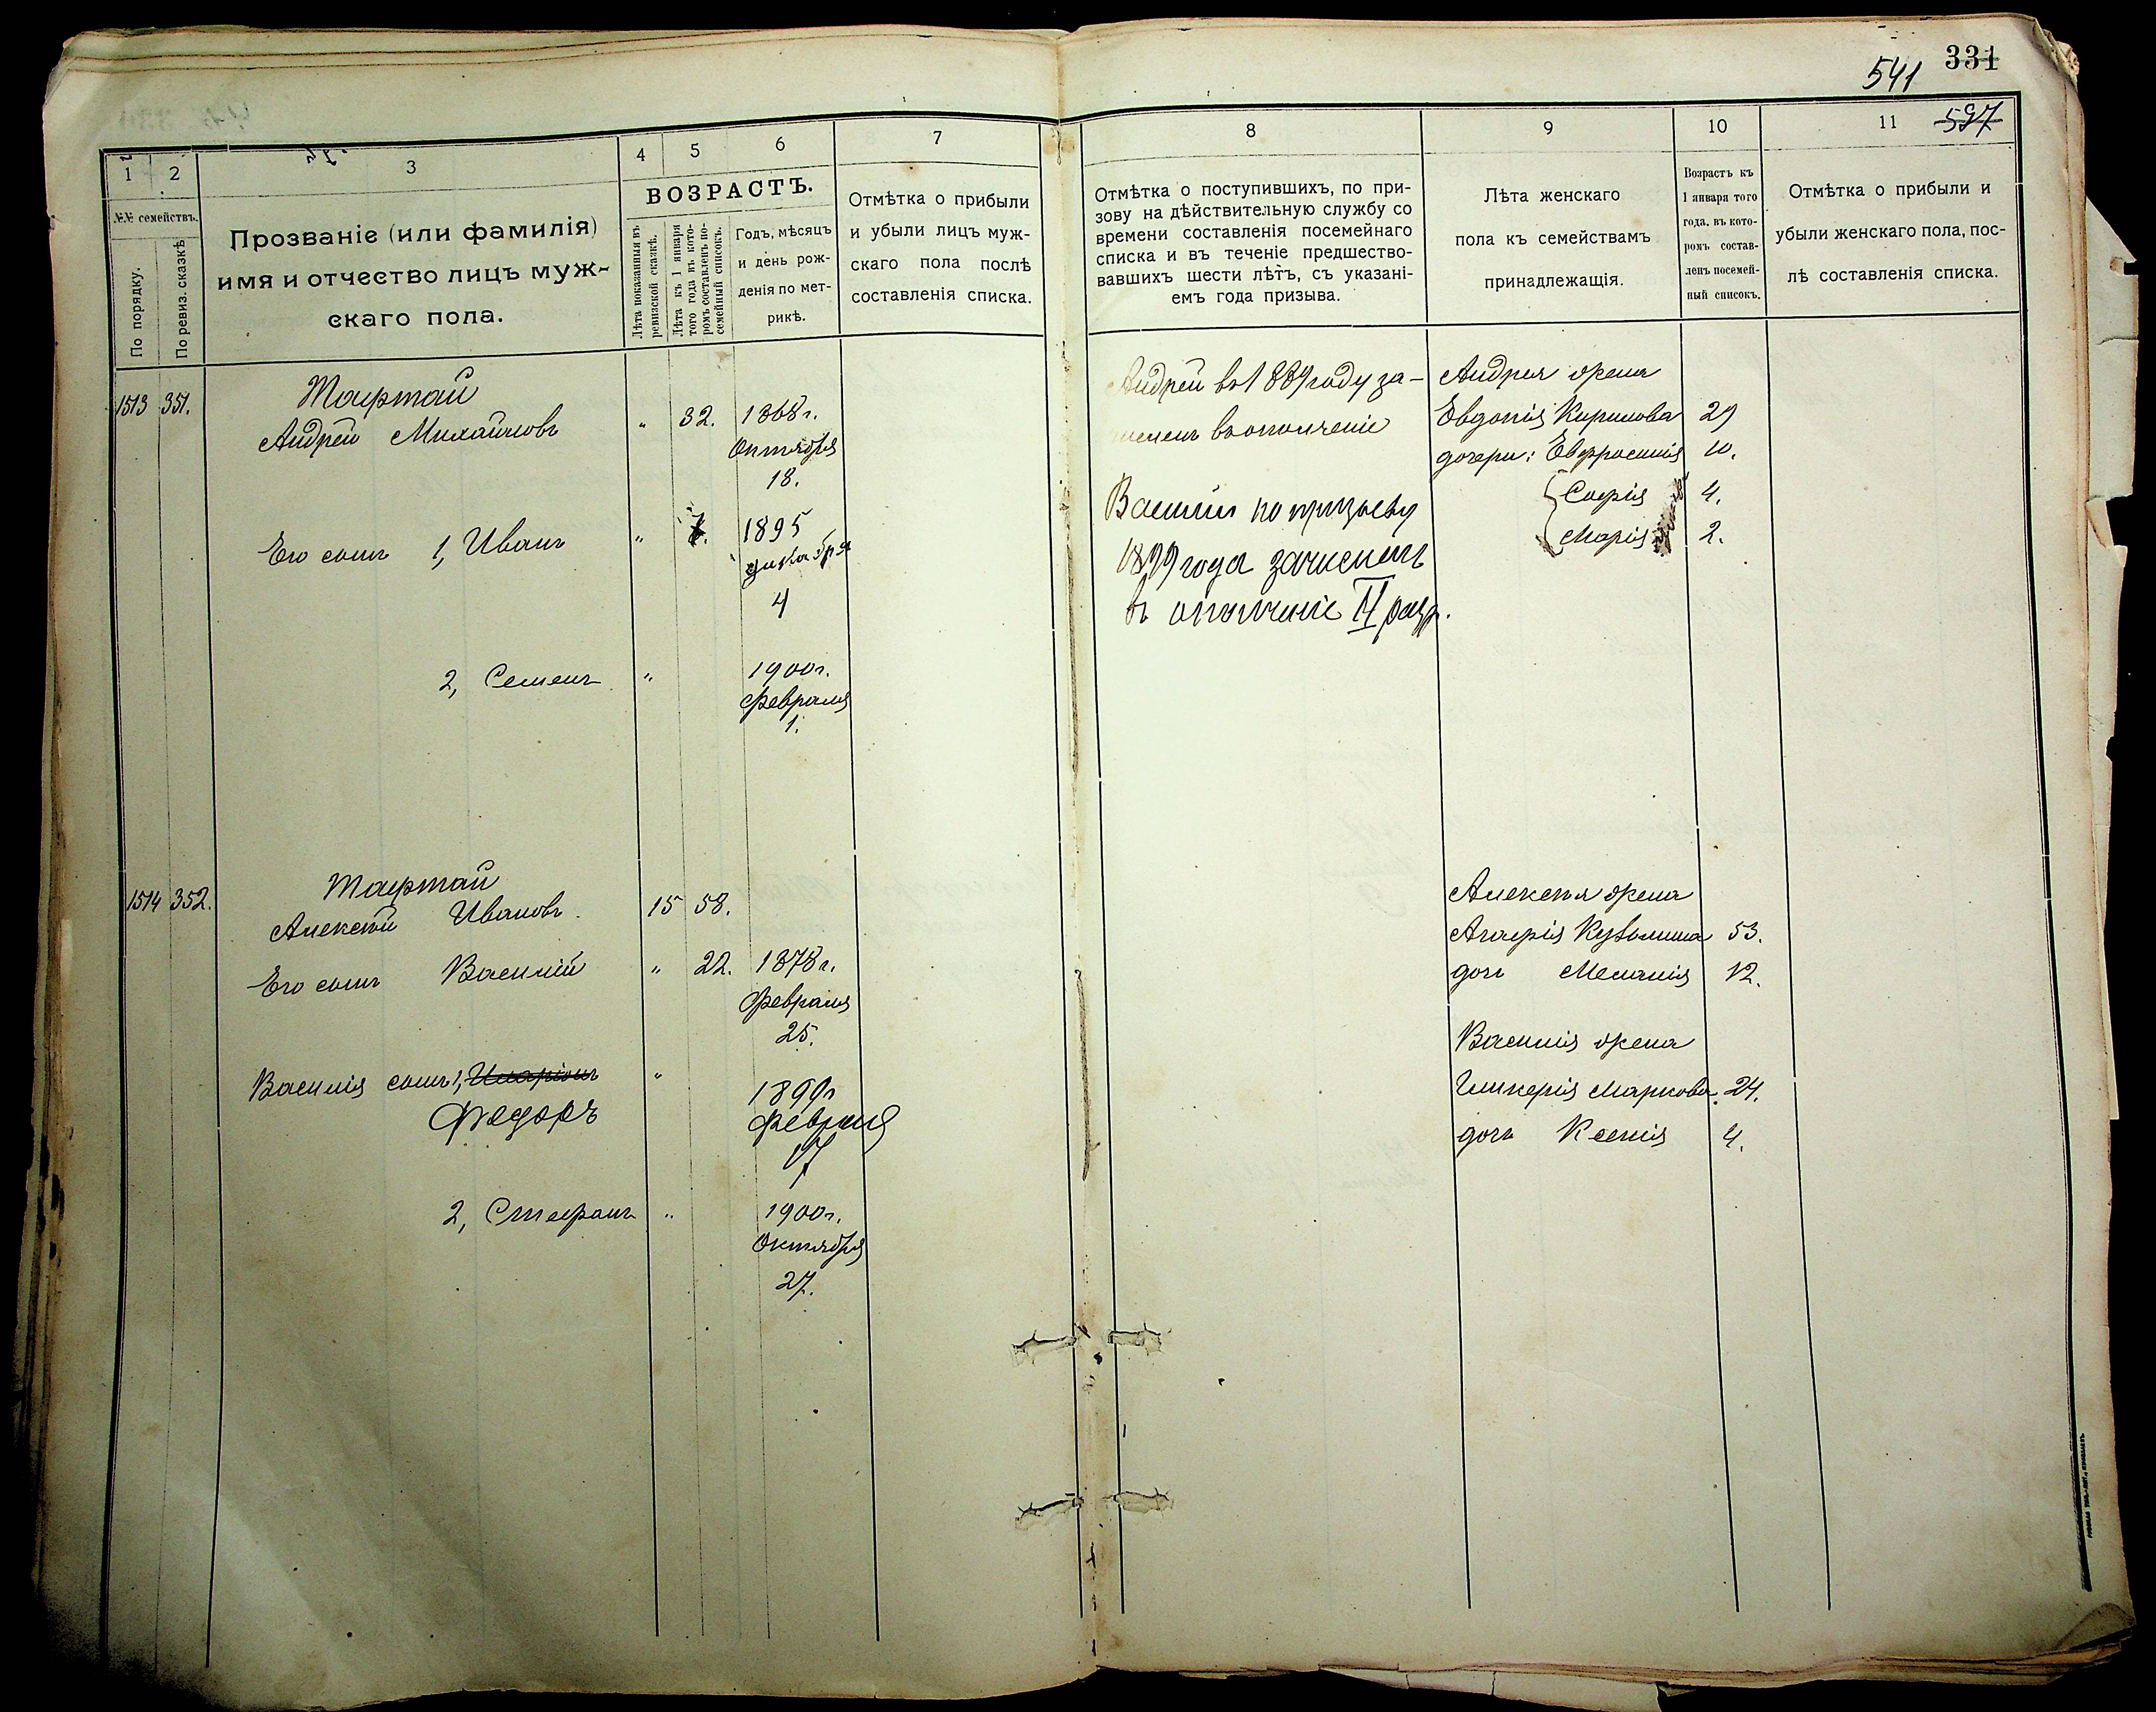 331
541
597
1 2 3 4 5 6 7
№№ семействъ.
По порядку.
По ревиз. сказкѣ
Прозваніе (или фамилія)
имя и отчество лицъ муж-
скаго пола.
ВОЗРАСТЪ.
Лѣта показанныя въ
ревизской сказкѣ.
Лѣта къ 1 января
того года въ кото-
ромъ составленъ по-
семейный списокъ.
Годъ, мѣсяцъ
и день рож-
денія по мет-
рикѣ.
Отмѣтка о прибыли
и убыли лицъ муж-
скаго пола послѣ
составленія списка.
1513 351. Тафтай
Андрей Михайловъ " 32. 1868 г.
Октября
18.
Его сынъ 1, Иванъ " 1895
декабря
4
2, Семенъ " 1900 г.
Февраля
1.
1514 352. Тафтай
Алексѣй Ивановъ. 15 58.
Его сынъ Василій " 22. 1878 г.
Февраля
25.
Василія сынъ 1, Иларіонъ "
Федоръ
1899 г
Февраля
17
2, Стефанъ " 1900 г.
Октября
27.
8 9 10 11
Отмѣтка о поступившихъ, по при-
зову на дѣйствительную службу со
времени составленія посемейнаго
списка и въ теченіе предшество-
вавшихъ шести лѣтъ, съ указані-
емъ года призыва.
Лѣта женскаго
пола къ семействамъ
принадлежащія.
Возрастъ къ
1 января того
года, въ кото-
ромъ состав-
ленъ посемей-
ный списокъ.
Отмѣтка о прибыли и
убыли женскаго пола, пос-
лѣ составленія списка.
Андрей въ 1889 году за-
численъ въ ополченіе
Василий по призыву
1899 года зачисленъ
въ ополченіе II разр.
Андрея жена
Евдокія Кирилова 29
дочери: Евфросинія 10.
Софія 4.
Марія 2.
Алексѣя жена
Агафія Кузьмина 53.
дочь Меланія 12.
Василія жена
Гликерія Маркова 24.
дочь Ксенія 4.